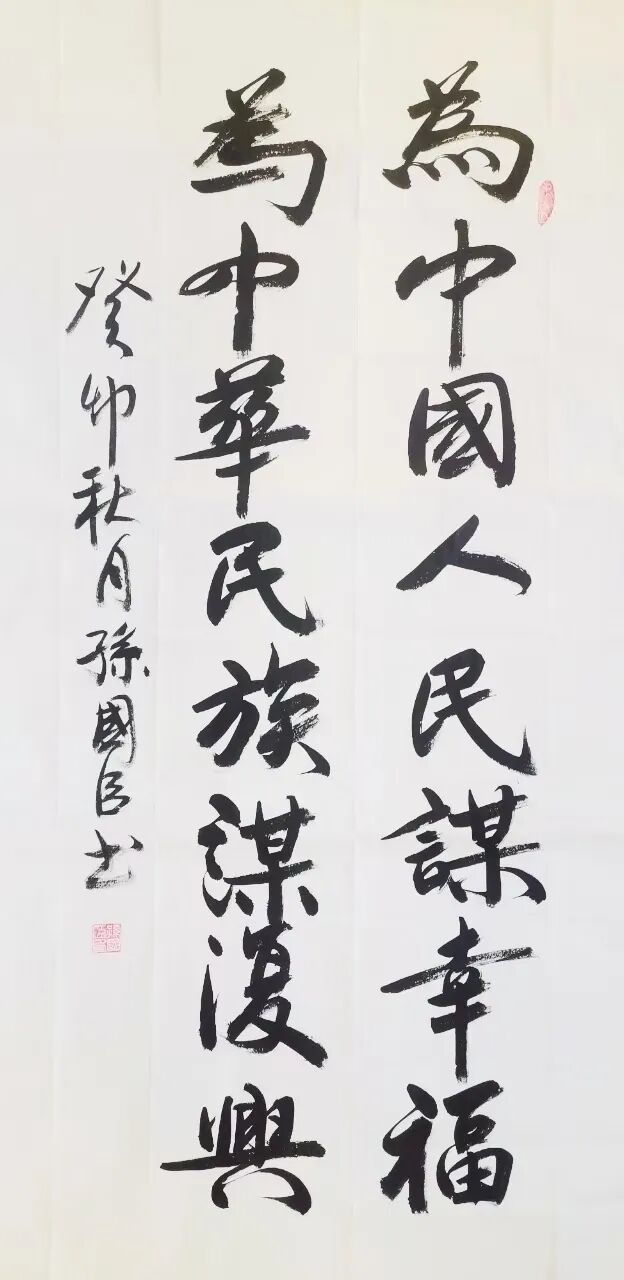 為中國人民謀幸福
為中華民族謀復興
癸卯秋月孫國臣書